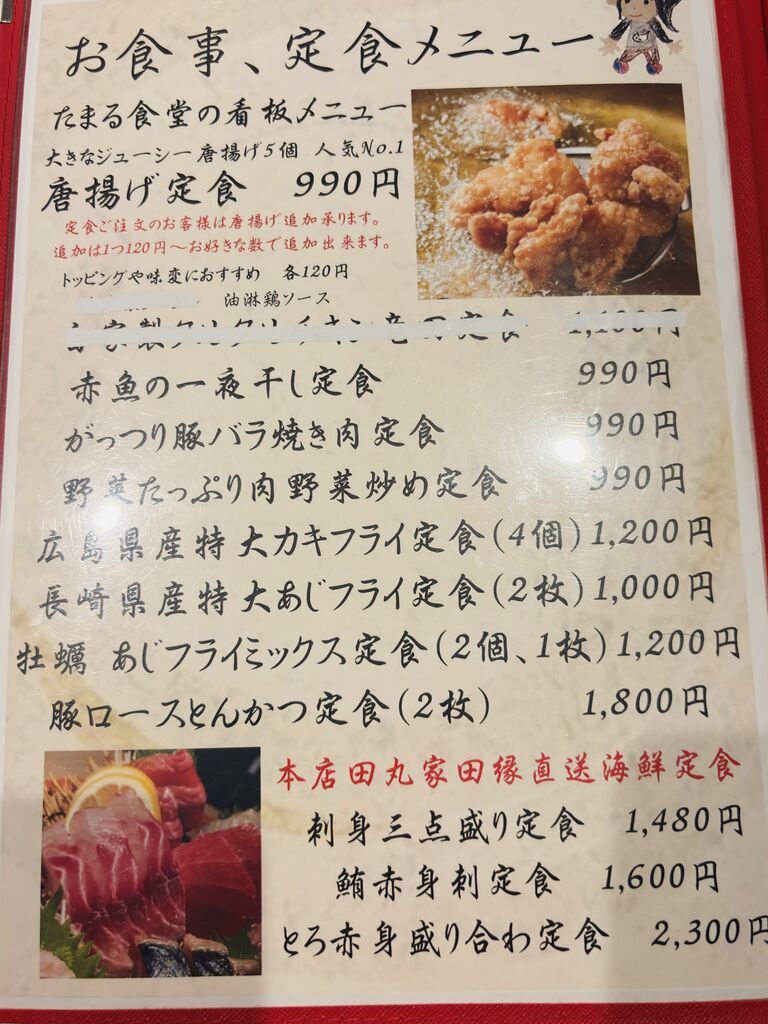 お食事、定食メニュー
たまる食堂の看板メニュー
大きなジューシー唐揚げ5個 人気No.1
唐揚げ定食 990円
定食ご注文のお客様は唐揚げ追加承ります。
追加は1つ120円〜お好きな数で追加出来ます。
トッピングや味変におすすめ 各120円
油淋鶏ソース
赤魚の一夜干し定食 990円
がっつり豚バラ焼き肉定食 990円
野菜たっぷり肉野菜炒め定食 990円
広島県産特大カキフライ定食(4個)1,200円
長崎県産特大あじフライ定食(2枚)1,000円
牡蠣 あじフライミックス定食(2個、1枚)1,200円
豚ロースとんかつ定食(2枚) 1,800円
本店田丸家田縁直送海鮮定食
刺身三点盛り定食 1,480円
鮪赤身刺定食 1,600円
とろ赤身盛り合わ定食 2,300円